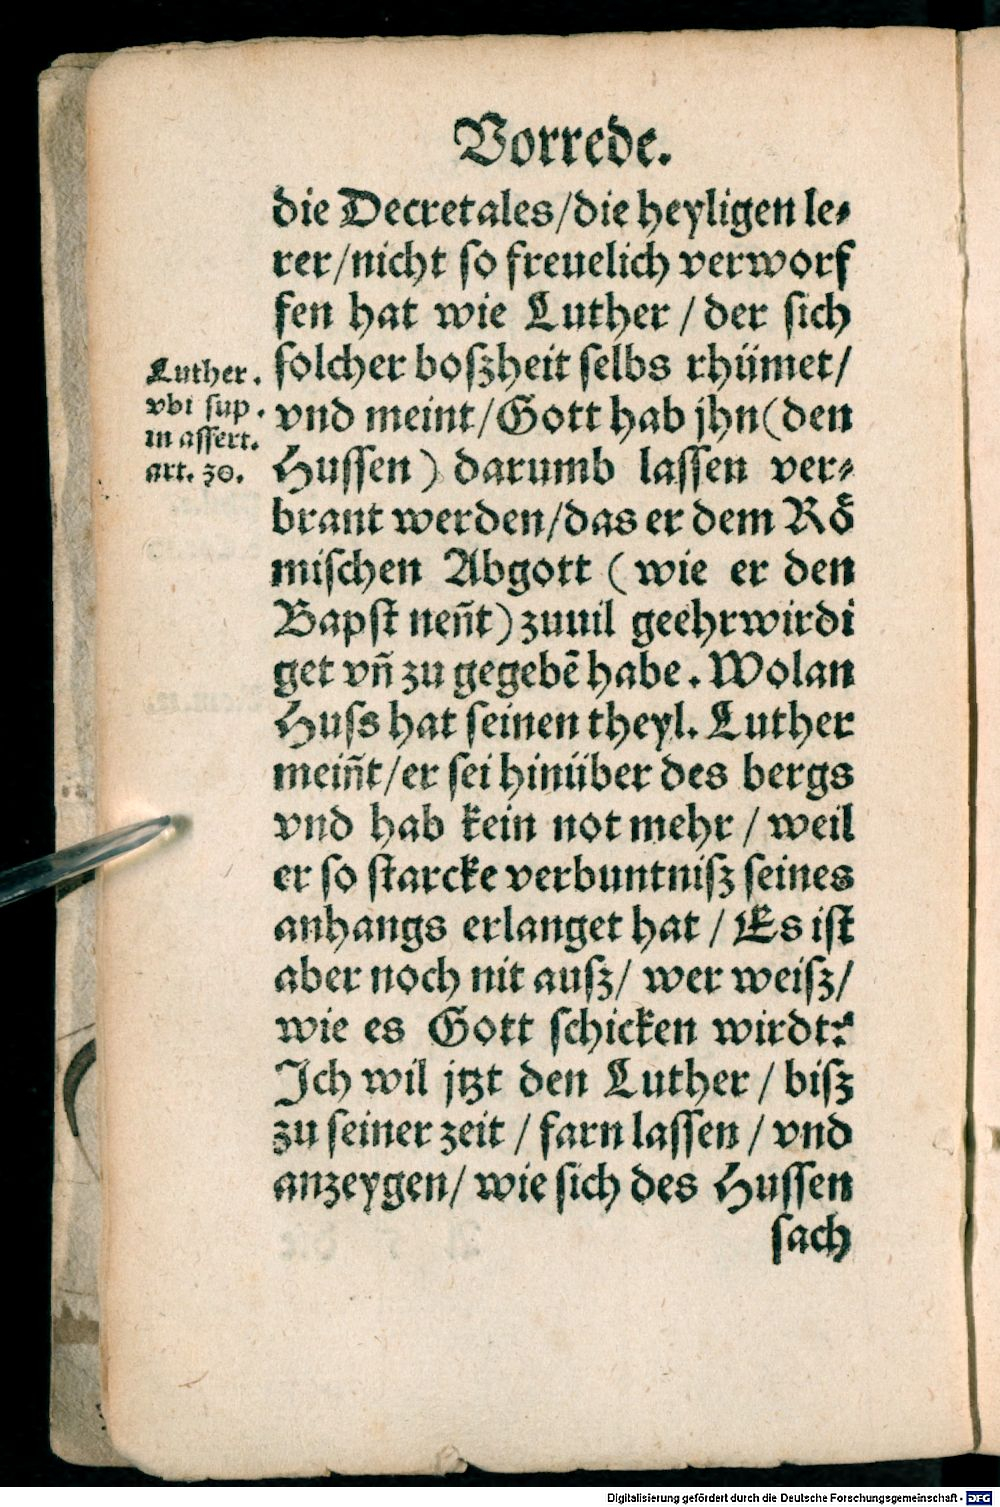 Vorrede.
die Decretales/die heyligen le⸗
rer/nicht so freuelich verworf
fen hat wie Luther / der sich
solcher boszheit selbs rhümet/
vnd meint/Gott hab jhn(den
Hussen) darumb lassen ver⸗
brant werden/das er dem Rö
mischen Abgott (wie er den
Bapst neñt)zuuil geehrwirdi
get vñ zu gegebẽ habe. Wolan
Huss hat seinen theyl. Luther
meiñt/er sei hinüber des bergs
vnd hab kein not mehr / weil
er so starcke verbuntnisz seines
anhangs erlanget hat / Es ist
aber noch nit ausz/ wer weisz/
wie es Gott schicken wirdt?
Ich wil jtzt den Luther / bisz
zu seiner zeit / farn lassen / vnd
anzeygen/ wie sich des Hussen
sach
Luther.
vbi sup.
in assert.
art. 30.
Digitalisierung gefördert durch die Deutsche Forschungsgemeinschaft - DFG